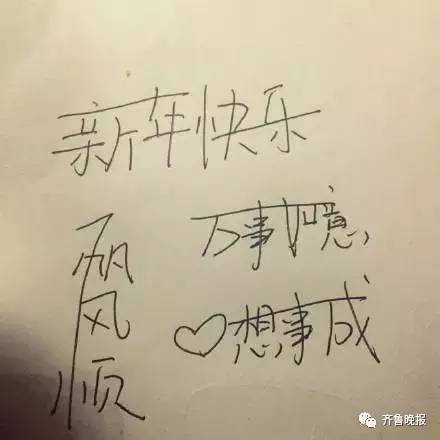 新年快乐
一帆风顺
万事如意
♡想事成
齐鲁晚报